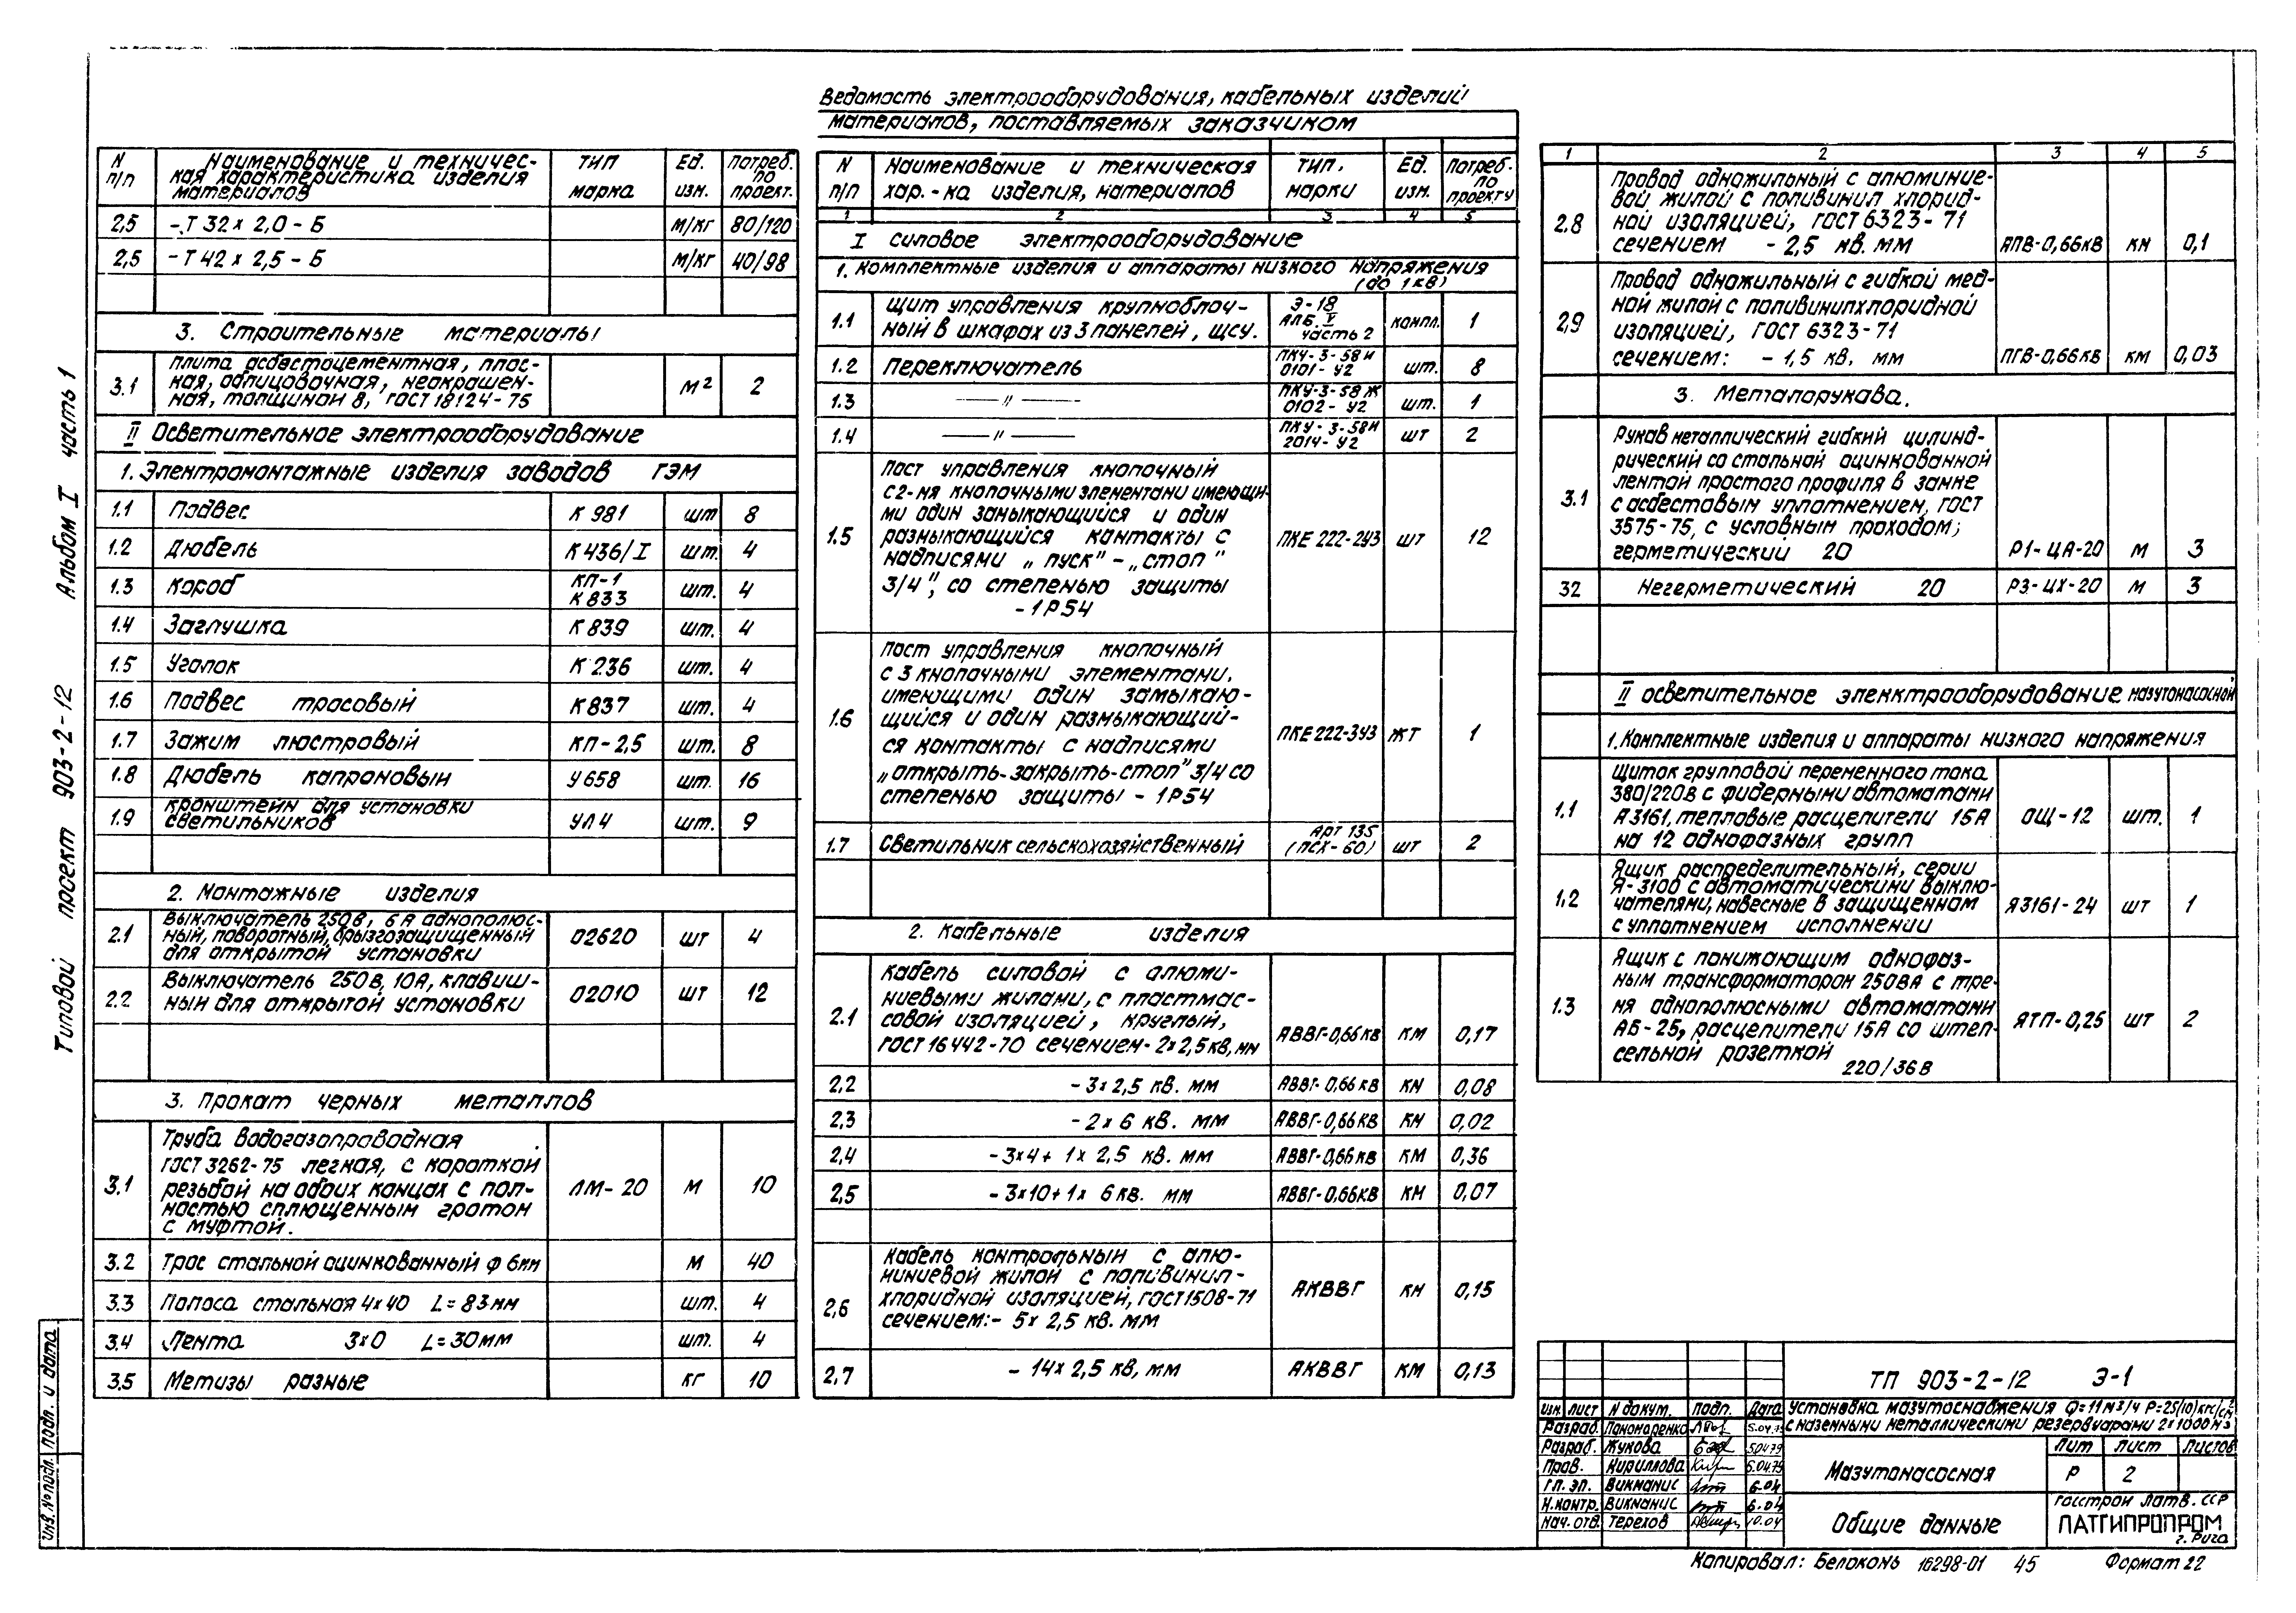 Типовой проект 903-2-12 Альбом I часть 1
N п/п | Наименование и техничес-кая характеристика изделия материалов | Тип марка | Ед. изм. | Потреб. по проект.
2,5 -Т 32х 2,0 - Б м/кг 80/120
2,5 -Т 42х 2,5 - Б м/кг 40/98
3. Строительные материалы
Плита асбестоцементная, плос-
3.1 ная, облицовочная, неокрашен- м² 2
ная, толщиной 8, ГОСТ 18124-75
II Осветительное электрооборудование
1. Электромонтажные изделия заводов ГЭМ
1.1 Подвес К 981 шт 8
1.2 Дюбель К 436/I шт. 4
1.3 Короб КП-1 К 833 шт. 4
1.4 Заглушка К 839 шт. 4
1.5 Уголок К 236 шт. 4
1.6 Подвес тросовый К 837 шт. 4
1.7 Зажим люстровый КП-2,5 шт. 8
1.8 Дюбель капроновый У 658 шт. 16
Кронштейн для установки
1.9 светильников УЛ 4 шт. 9
2. Монтажные изделия
Выключатель 250в, 6А однополюс-
2.1 ный, поворотный, брызгозащищенный 02620 шт 4
для открытой установки
Выключатель 250в, 10А, клавиш-
2.2 ный для открытой установки 02010 шт 12
3. Прокат черных металлов
Труба водогазопроводная
ГОСТ 3262-75 легкая, с короткой
3.1 резьбой на обоих концах с пол- ЛМ-20 м 10
ностью сплющенным гратом
с муфтой.
3.2 Трос стальной оцинкованный ф 6мм м 40
3.3 Полоса стальная 4х40 L=83мм шт. 4
3.4 Лента 3х0 L=30мм шт. 4
3.5 Метизы разные кг 10
Ведомость электрооборудования, кабельных изделий
материалов, поставляемых заказчиком
N п/п | Наименование и техническая хар.-ка изделия, материалов | Тип, марки | Ед. изм. | Потреб. по проекту
1 2 3 4 5
I Силовое электрооборудование
1. Комплектные изделия и аппараты низкого напряжения
(до 1кв)
Щит управления крупноблоч- Э-18
1.1 ный в шкафах из 3 панелей, щсу. Алб. V часть 2 компл. 1
1.2 Переключатель ПКУ-3-58И 0101-У2 шт. 8
1.3 — " — ПКУ-3-58Ж 0102-У2 шт. 1
1.4 — " — ПКУ-3-58И 2014-У2 шт 2
Пост управления кнопочный
с 2-мя кнопочными элементами имеющи-
ми один замыкающийся и один
1.5 размыкающийся контакты с ПКЕ 222-2У3 шт 12
надписями „пуск"-„стоп"
3/4", со степенью защиты
-1Р54
Пост управления кнопочный
с 3 кнопочными элементами,
имеющими один замыкаю-
1.6 щийся и один размыкающий- ПКЕ 222-3У3 жт 1
ся контакты с надписями
„открыть-закрыть-стоп" 3/4 со
степенью защиты - 1Р54
1.7 Светильник сельскохозяйственный Арт 135 (ПСХ-60) шт 2
2. Кабельные изделия
Кабель силовой с алюми-
ниевыми жилами, с пластмас-
2.1 совой изоляцией, круглый,
ГОСТ 16442-70 сечением- 2х2,5кв,мм АВВГ-0,66кв км 0,17
2.2 -3х2,5 кв. мм АВВГ-0,66кв км 0,08
2,3 -2х6 кв. мм АВВГ-0,66кв км 0,02
2,4 -3х4+ 1х 2,5 кв. мм АВВГ-0,66кв км 0,36
2,5 -3х10+1х 6кв. мм АВВГ-0,66кв км 0,07
Кабель контрольный с алю-
миниевой жилой с поливинил-
2,6 хлоридной изоляцией, гост1508-71 АКВВГ км 0,15
сечением:- 5х 2,5 кв. мм
2,7 - 14х 2,5 кв, мм АКВВГ км 0,13
1 2 3 4 5
Провод одножильный с алюминие-
вой жилой с поливинил хлорид-
2.8 ной изоляцией, гост 6323-71
сечением - 2,5 кв. мм АПВ-0,66кв км 0,1
Провод одножильный с гибкой мед-
ной жилой с поливинилхлоридной
2,9 изоляцией, ГОСТ 6323-71
сечением: - 1,5 кв, мм ПГВ-0,66кв км 0,03
3. Металорукава.
Рукав металлический гибкий цилинд-
рический со стальной оцинкованной
лентой простого профиля в замке
3.1 с асбестовым уплотнением, ГОСТ
3575-75, с условным проходом;
герметический 20 Р1-ЦА-20 м 3
32 Негерметический 20 Р3-ЦХ-20 м 3
II Осветительное электрооборудование мазутонасосной
1. Комплектные изделия и аппараты низкого напряжения
Щиток групповой переменного тока
380/220в с фидерными автоматами
1.1 А3161, тепловые расцепители 15А ОЩ-12 шт. 1
на 12 однофазных групп
Ящик распределительный, серии
Я-3100 с автоматическими выклю-
1.2 чателями, навесные в защищенном Я3161-24 шт 1
с уплотнением исполнении
Ящик с понижающим однофаз-
ным трансформатором 250ВА с тре-
1.3 мя однополюсными автоматами ЯТП-0,25 шт 2
АБ-25, расцепители 15А со штеп-
сельной розеткой
220/36в
ТП 903-2-12 Э-1
Изм. Лист N докум. Подп. Дата
Установка мазутоснабжения Q=11м3/ч Р=25(10)кгс/см2
с наземными металлическими резервуарами 2х1000м3
Разраб. Пономаренко 5.04.79
Разраб. Жукова 5.04.79
Пров. Кириллова 5.04.79
Гл. эл. Викманис 6.04
Н.контр. Викманис 6.04
Нач. отд. Терехов 10.04
Мазутонасосная
Лит Лист Листов
Р 2
Общие данные
Госстрой Латв. ССР
ЛАТГИПРОПРОМ
г. Рига
Инв. № подл. Подп. и дата
Копировал: Белоконь 16298-01 45 Формат 22